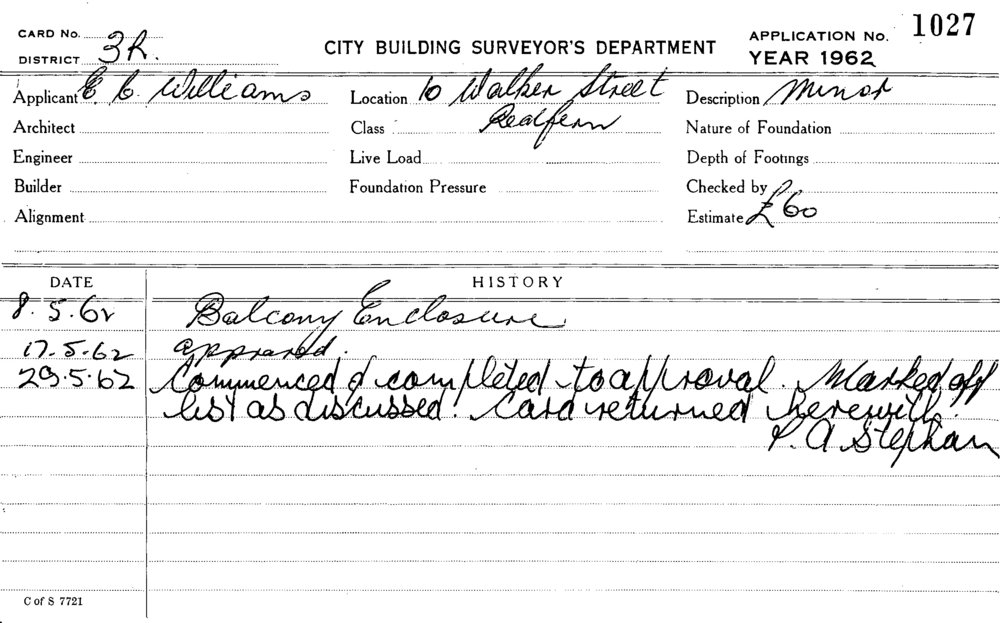 CARD No.
DISTRICT 3R.
CITY BUILDING SURVEYOR'S DEPARTMENT
APPLICATION No. 1027
YEAR 1962
Applicant E. C. Williams
Location 10 Walker Street
Redfern
Description Minor
Architect
Class
Nature of Foundation
Engineer
Live Load
Depth of Footings
Builder
Foundation Pressure
Checked by
Alignment
Estimate £60
DATE
HISTORY
8.5.62 Balcony Enclosure
17.5.62 approved.
29.5.62 Commenced & completed to approval. Marked off
list as discussed. Card returned herewith.
P. A Stephan
C of S 7721